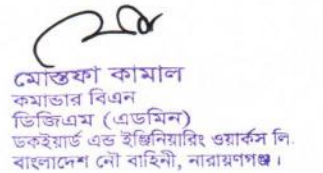 মোস্তফা কামাল
কমান্ডার বিএন
ডিজিএম (এডমিন)
ডকইয়ার্ড এন্ড ইঞ্জিনিয়ারিং ওয়ার্কস লি.
বাংলাদেশ নৌ বাহিনী, নারায়ণগঞ্জ।